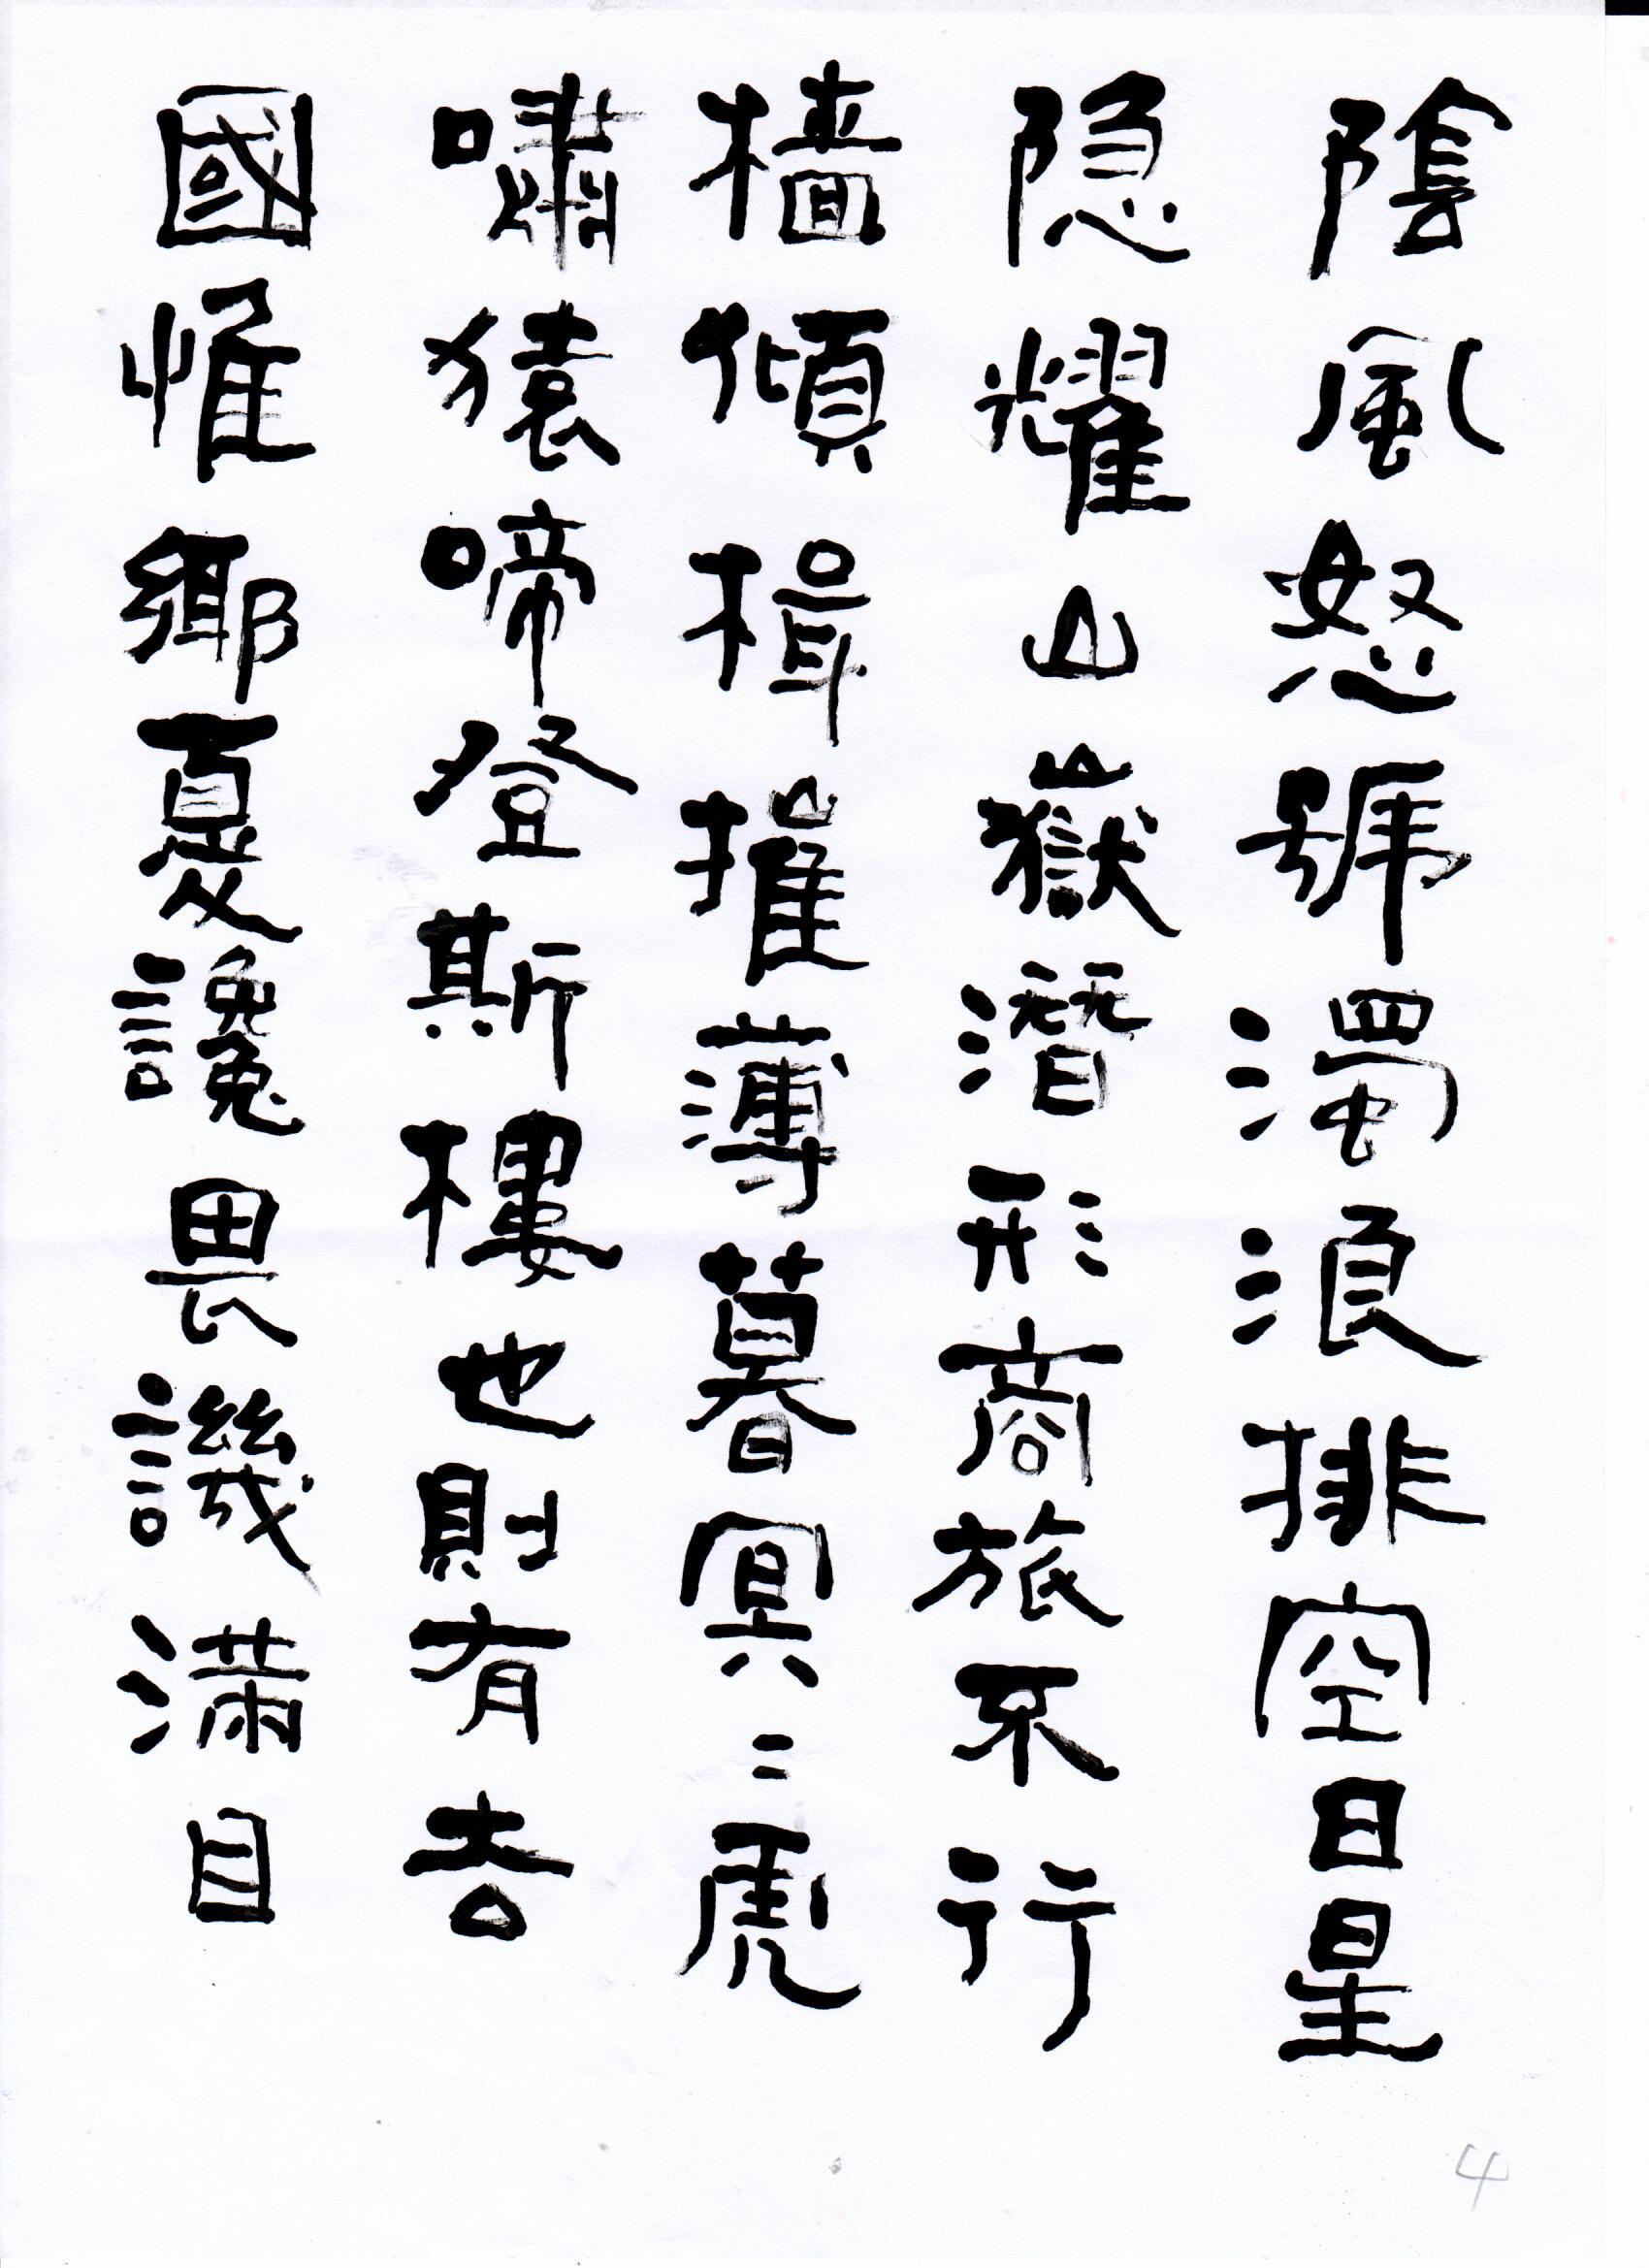 陰風怒號濁浪排空日星
隐耀山嶽潛形商旅不行
檣傾楫摧薄暮冥〻虎
嘯猿啼登斯樓也則有去
國惟鄉憂讒畏譏滿目
4